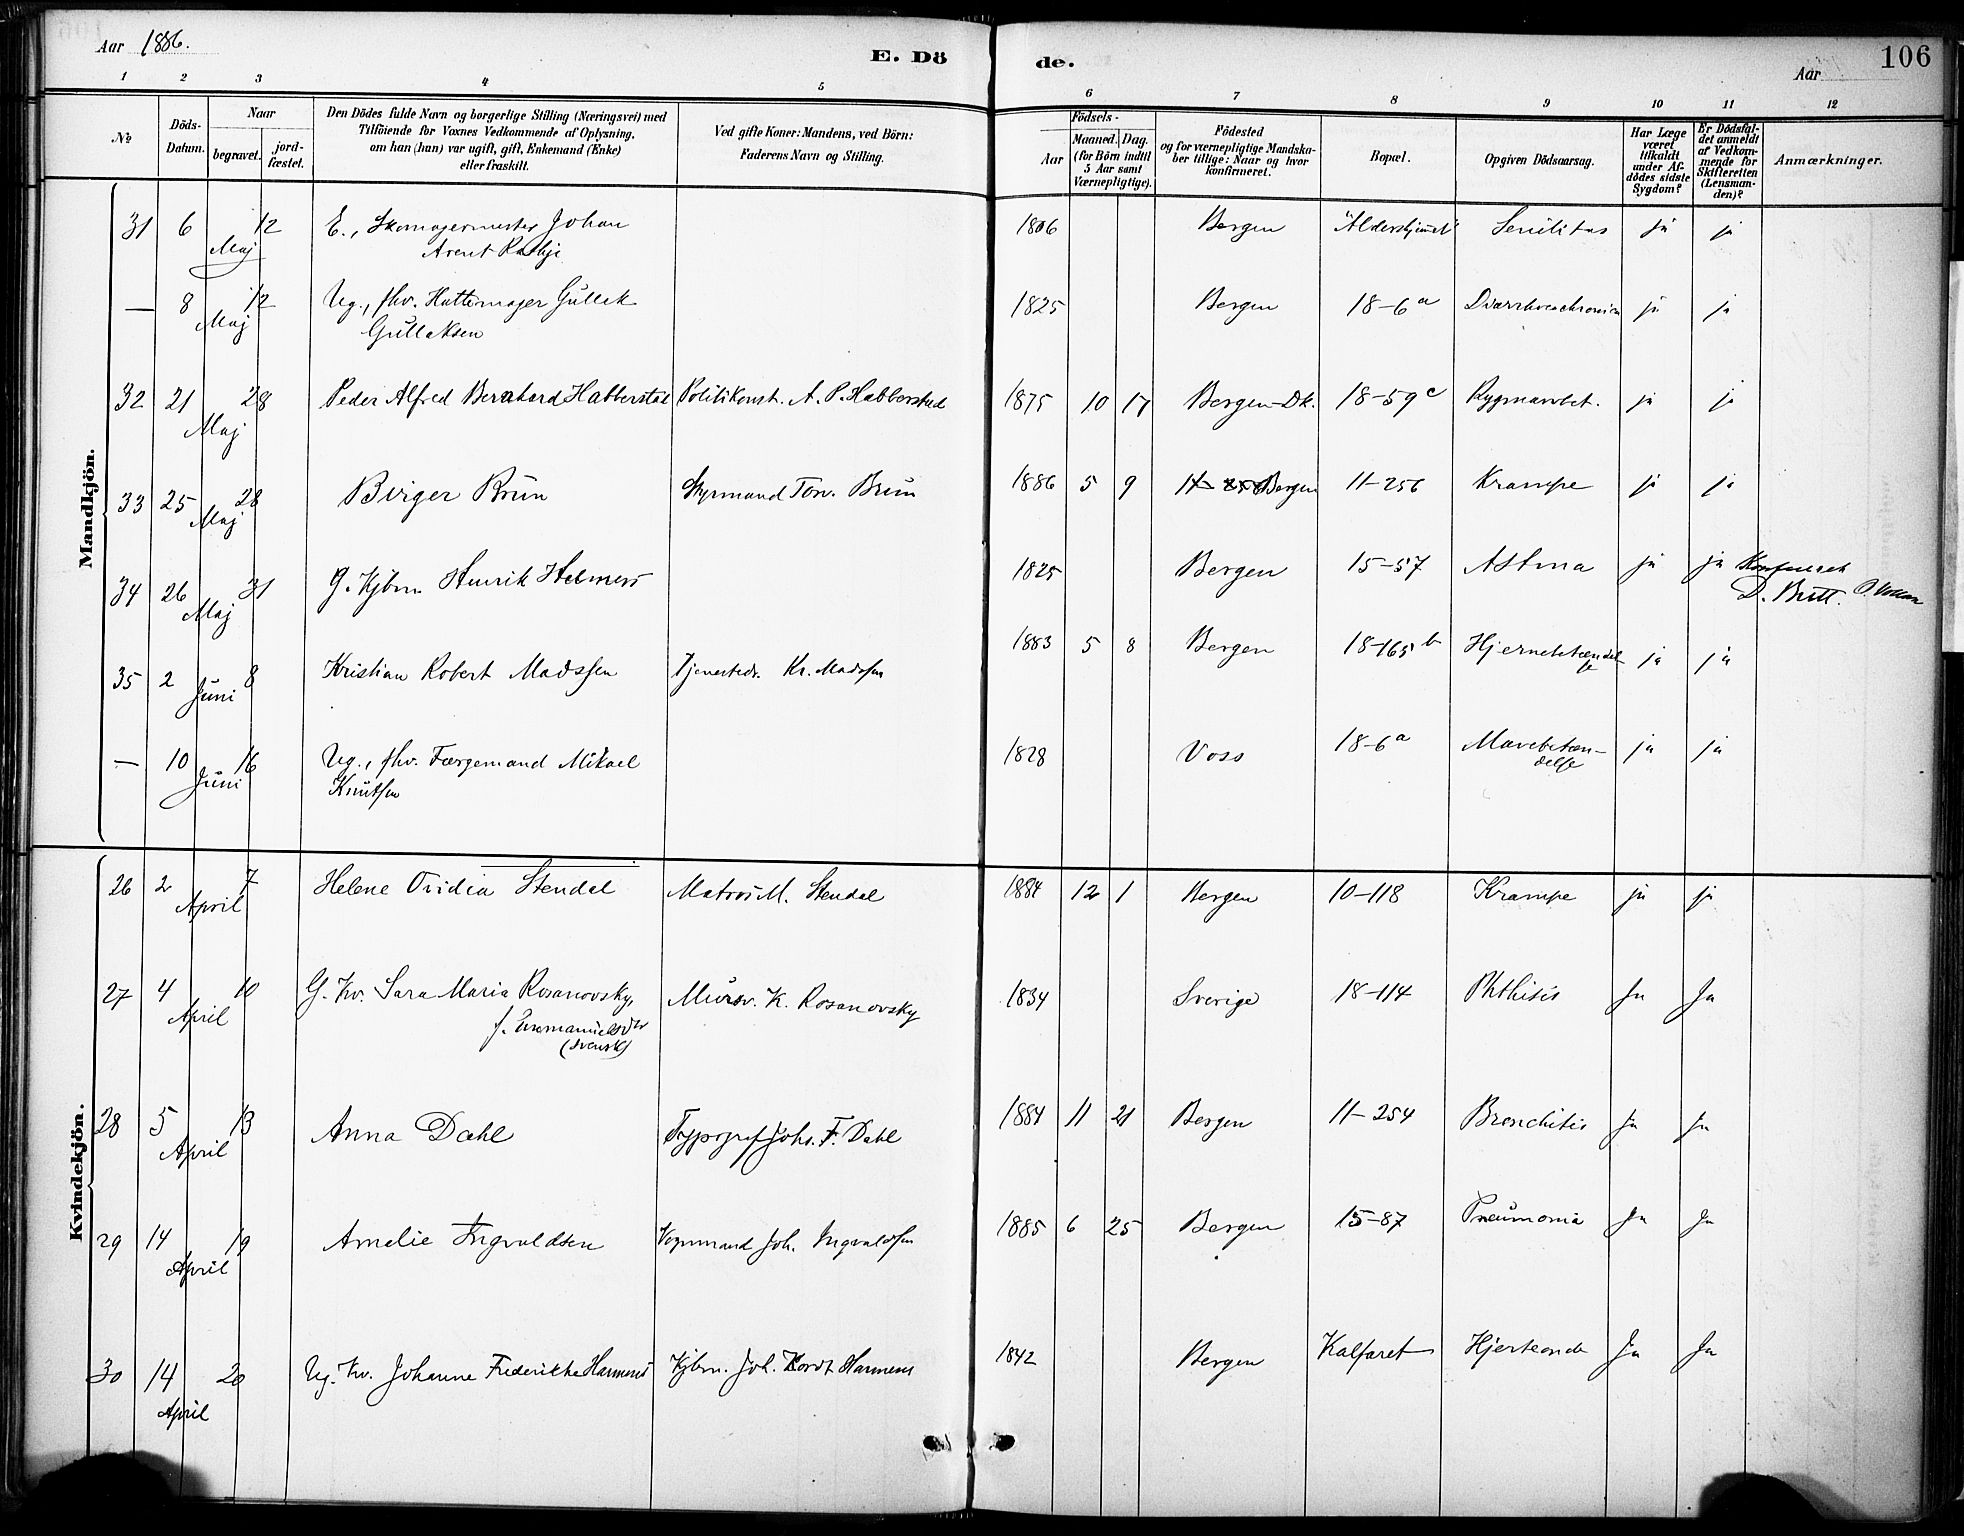 Aar 1886.
E. Dö
de.
Aar
106
1 2 3 4 5 6 7 8 9 10 11 12
No
Döds-
Datum.
Naar
begravet.
jord-
fæstet.
Den Dödes fulde Navn og borgerlige Stilling (Næringsvei) med
Tilföiende for Voxnes Vedkommende af Oplysning,
om han (hun) var ugift, gift, Enkemand (Enke)
eller fraskilt.
Ved gifte Koner: Mandens, ved Börn:
Faderens Navn og Stilling.
Födsels-
Aar
Maaned. Dag.
(for Börn indtil
5 Aar samt
Værnepligtige).
Födested
og for værnepligtige Mandska-
ber tillige: Naar og hvor
konfirmeret.
Bopæl.
Opgiven Dödsaarsag.
Har Læge
været
tilkaldt
under Af-
dödes sidste
Sygdom?
Er Dödsfal-
det anmeldt
af Vedkom-
mende for
Skifteretten
(Lensman-
den)?
Anmærkninger.
Mandkjön.
31 6 12 E., Skomagermester Johan 1806 Bergen "Aldershjemet" Senilitas ja ja
Maj Arent
— 8 12 Ug., fhv. Hattemager Gullek 1825 Bergen 18-6a ja ja
Maj Gulleksen
32 21 28 Peder Alfred Bernhard Habberstad Politikonst. A. P. Habberstad 1875 10 17 Bergen-Dk. 18-59c Rygmarvbet. ja ja
Maj
33 25 28 Birger Brun Styrmand Brun 1886 5 9 Bergen 11-256 Krampe ja ja
Maj
34 26 31 G. Kjbm. Henrik Helmers 1825 Bergen 15-57 Astma ja ja
Maj D.
35 2 8 Kristian Robert Madssen Kr. Madssen 1883 5 8 Bergen 18-165b Hjernebetændel- ja ja
Juni se
— 10 16 Ug., fhv. Færgemand Mikael 1828 Voss 18-6a Mavebetæn- ja ja
Juni Knutsen delse
Kvindekjön.
26 2 7 Helene Ovidia Stendal Matros M. Stendal 1884 12 1 Bergen 10-118 Krampe ja ja
April
27 4 10 G. Kv. Sara Maria Rosanovsky, Mursv. K. Rosanovsky 1834 Sverige 18-114 Phthisis Ja Ja
April f. Emmanuelsdtr
(svensk)
28 5 13 Anna Dahl Typograf Johs. F. Dahl 1884 11 21 Bergen 11-254 Bronchitis Ja Ja
April
29 14 19 Amelie Ingvaldsen Vognmand Joh. Ingvaldsen 1885 6 25 Bergen 15-87 Pneumonia Ja Ja
April
30 14 20 Ug. Kv. Johanne Frederikke Harmens Kjbm. Joh. Kordt Harmens 1842 Bergen Kalfaret Hjerteonde Ja Ja
April